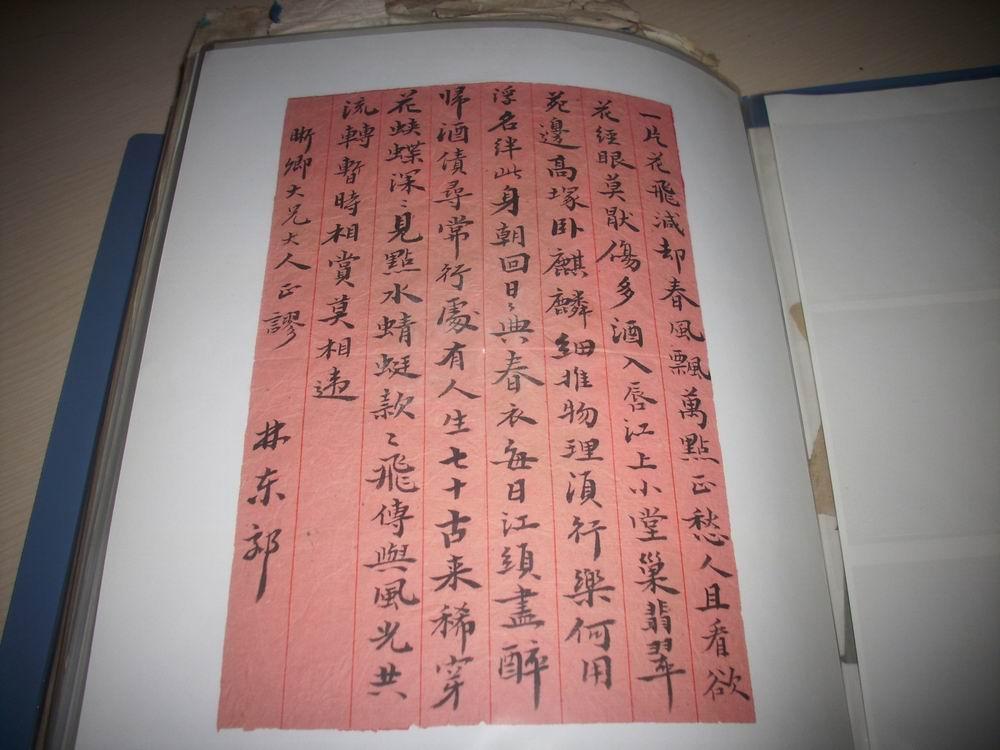 一片花飛減却春風飄萬點正愁人且看欲
花經眼莫厭傷多酒入唇江上小堂巢翡翠
苑邊高塚臥麒麟細推物理須行樂何用
浮名絆此身朝回日〻典春衣每日江頭盡醉
歸酒債尋常行處有人生七十古来稀穿
花蛺蝶深〻見點水蜻蜓款〻飛傳與風光共
流轉暫時相賞莫相違
晰卿大兄大人正謬
林东郊